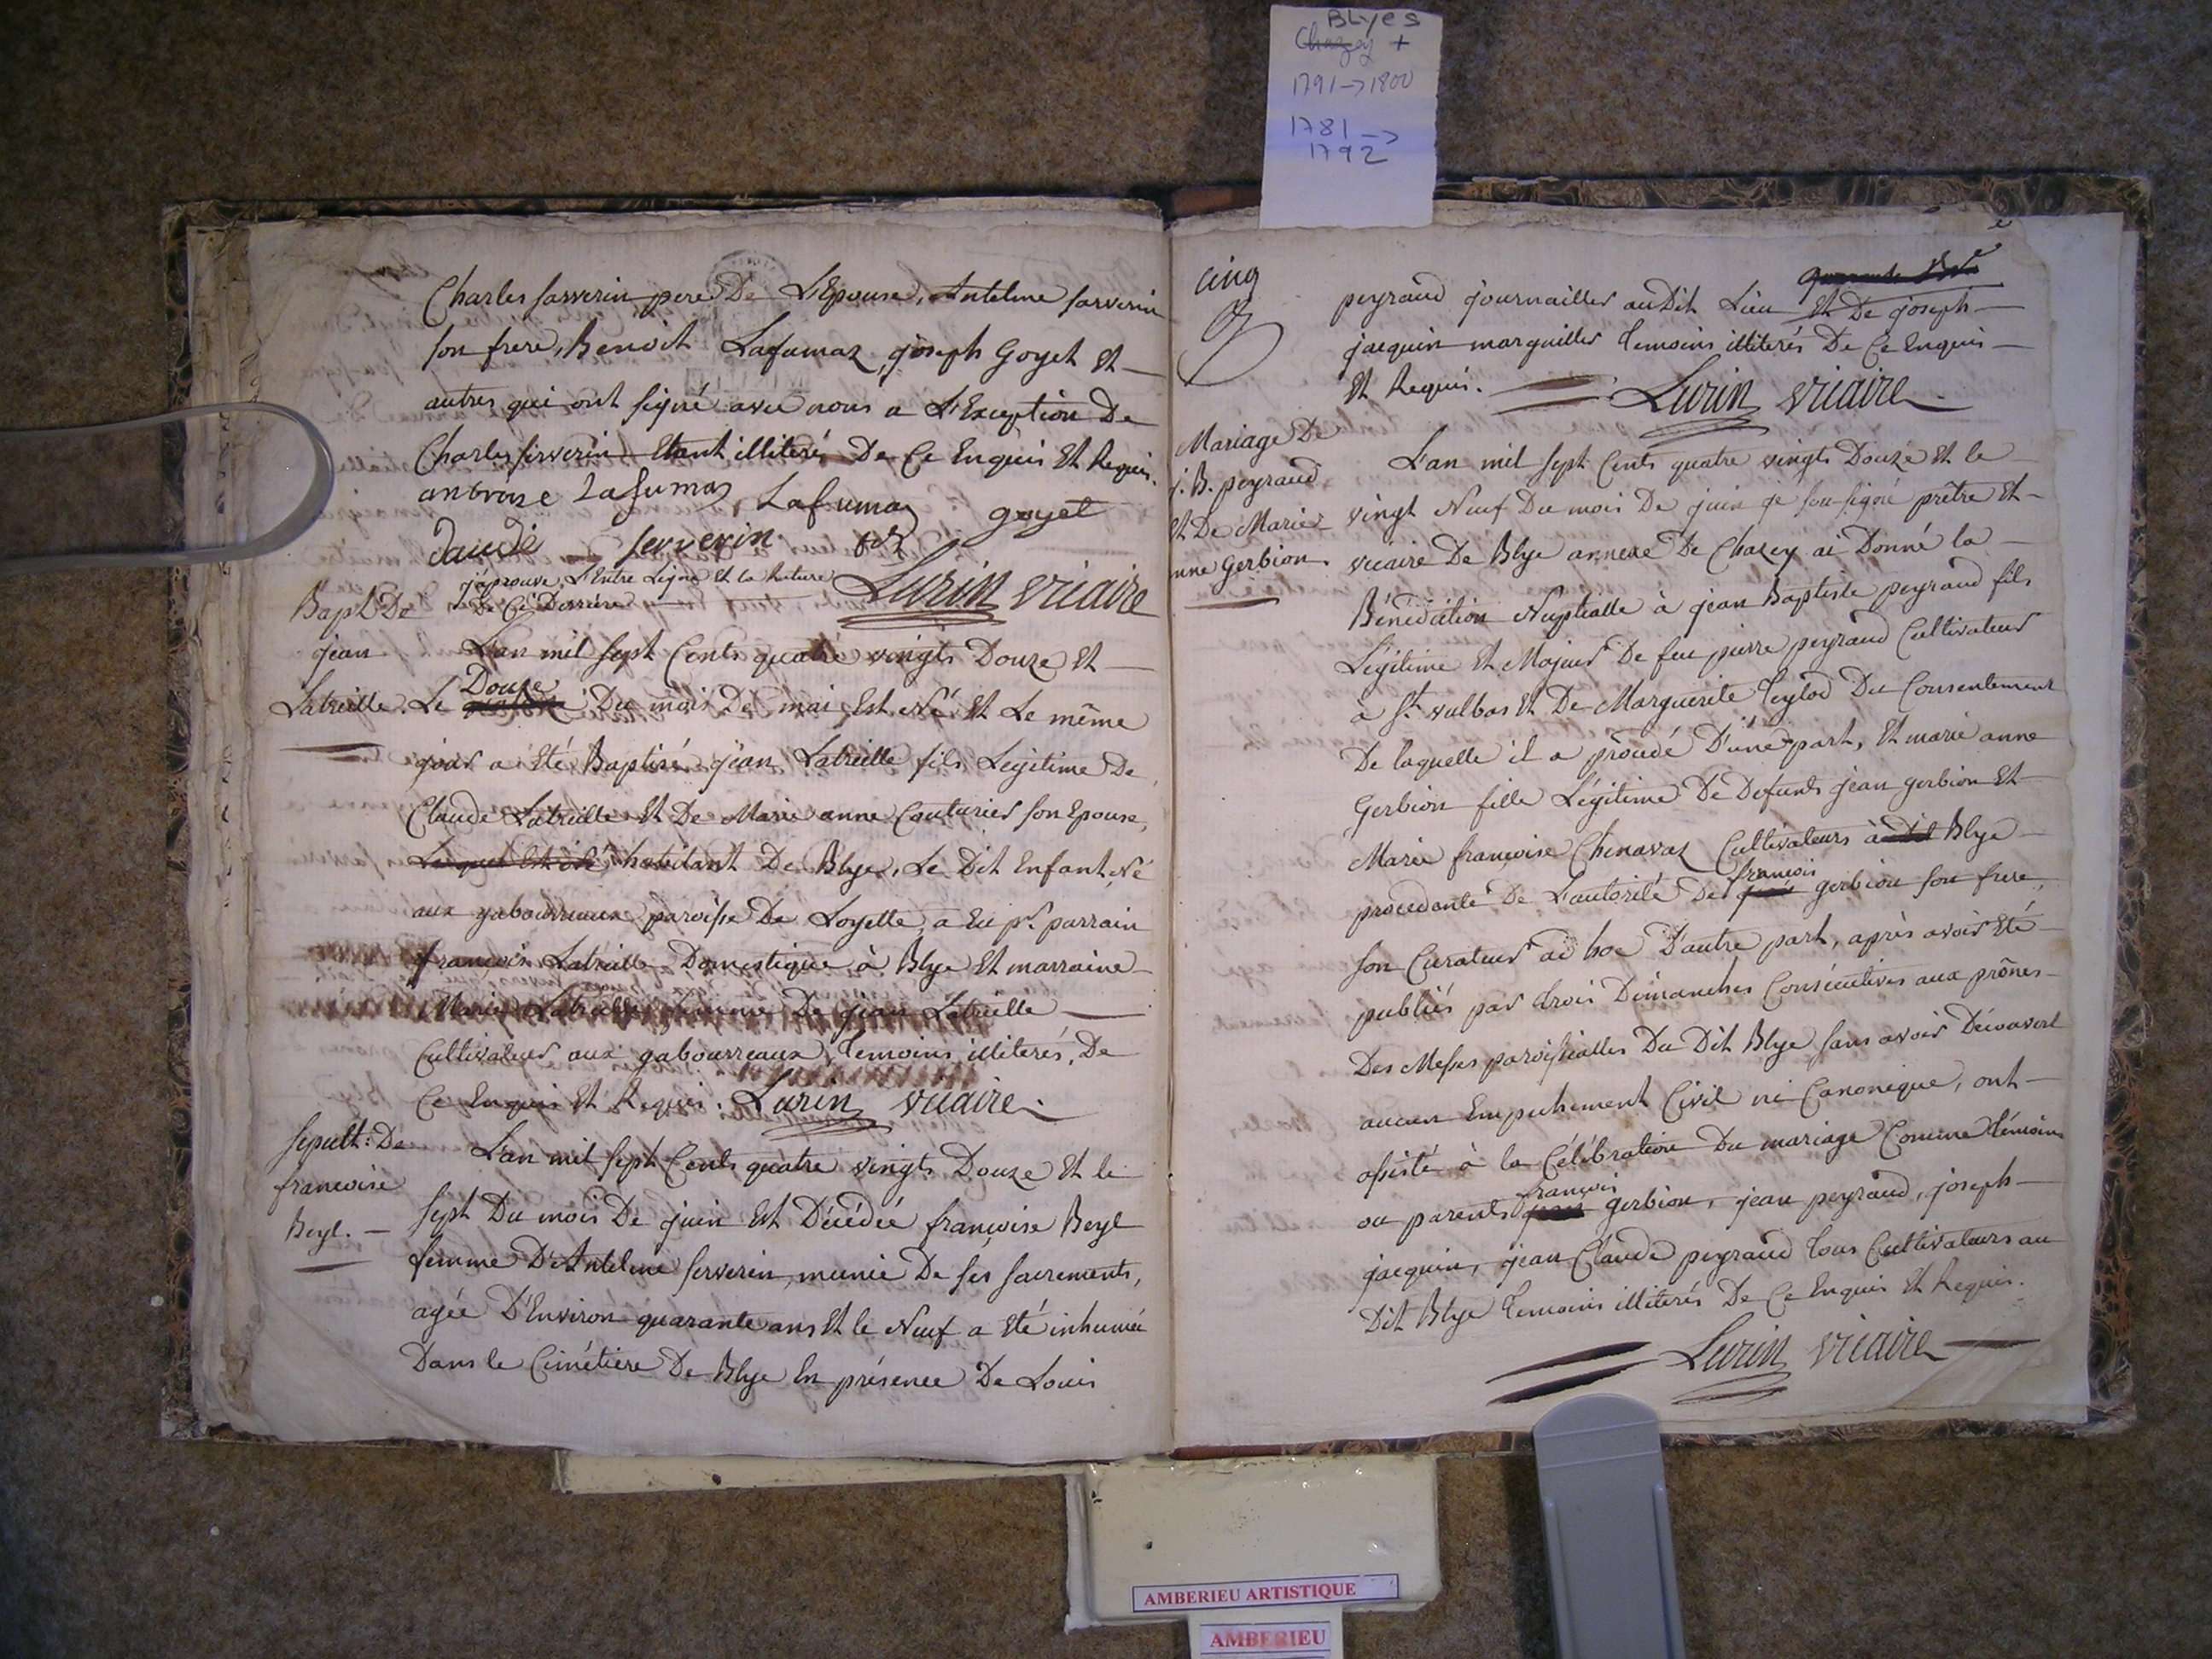 BLyes
Chazey +
1791 -> 1800
1781 ->
1792
Charles sarverin pere De L'Epouse, Antelme sarverin
son frere, Benoit Lafumaz, joseph Goyet Et
autres qui ont signé avec nous a L'Exception De
Charles serverin Etant illiteré De Ce Enquis Et Requis.
anbroise Lafumaz Lafumaz goyet
Claude serverin
j'aprouve L'Entre Ligne et la Rature
De Ci Derriere
Lurin vicaire
Bapt. De
jean
Latreille.
L'an mil sept Cents quatre vingts Douze Et
Douze
Le Du mois De mai Est Né Et Le même
jour a Eté Baptisé jean Latreille fils Legitime De
Claude Latreille Et De Marie anne Couturier son Epouse,
habitant De Blye, Le Dit Enfant Né
aux gabourreaux paroisse De Loyette, a Eu pr. parrain
françois Latreille Domestique à Blye Et marraine
Marie Latreille femme De jean Latreille
Cultivateur aux gabourreaux, temoins illiterés, De
Ce Enquis Et Requis. Lurin vicaire.
sepult: De
francoise
Beyl.
L'an mil sept Cents quatre vingts Douze Et le
sept Du mois De juin Est Décédée françoise Beyl
femme D'Antelme serverin, munie De ses sacrements,
agée D'Environ quarante ans Et le Neuf a Eté inhumée
Dans le Cimétiere De Blye En présence De Louis
cinq
peyraud journailler audit Lieu Et De joseph
jacquin marguiller temoins illiterés De Ce Enquis
Et Requis. Lurin vicaire
Mariage De
j. B. peyraud
Et De Marie
nne Gerbion.
L'an mil sept Cents quatre vingts Douze Et le
vingt Neuf Du mois De juin je sousigné prêtre Et
vicaire De Blye annexe De Chazey ai Donné la
Bénédiction Nuptialle à jean Baptiste peyraud fils
Légitime Et Majeur De feu pierre peyraud Cultivateur
à St. vulbas Et De Marguerite Teylod Du Consentement
De laquelle il a procédé D'une part, Et marie anne
Gerbion fille Légitime De Defunts jean gerbion Et
Marie françoise Chenavaz Cultivateurs à Blye
françois
procedante De L'autorité De gerbion son frere,
son Curateur ad hoc D'autre part, après avoir Eté
publiés par trois Dimanches Consécutives aux prônes
Des Messes paroissialles Du Dit Blye sans avoir Découvert
aucun Empechement Civil ni Canonique, ont
assisté à la Célébration Du mariage Comme témoins
françois
ou parents gerbion, jean peyraud, joseph
jacquin, jean Claude peyraud tous Cultivateurs au
Dit Blye temoins illiterés De Ce Enquis Et Requis.
Lurin vicaire
AMBERIEU ARTISTIQUE
AMBERIEU